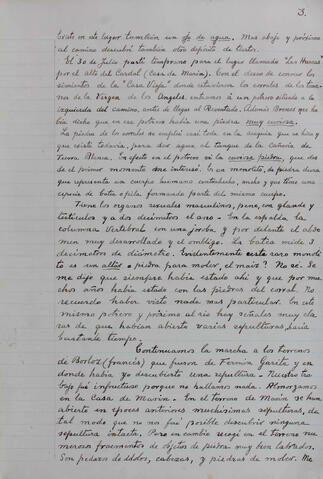 3.
Existe en ete lugar también un ojo de agua. Mas abajo y próximo
al camino descubrí también otro depósito de tiestos.
El 30 de Julio partí temprano para el lugar llamado "Las Huacas"
por el Alto del Cardal (Casa de María). Con el deseo de conocer los
cimientos de la "Casa Vieja" donde estuvieron los corrales de los terre-
nos de la Virgen de los Angeles, entramos á un potrero situado a la
izquierda del camino, antes de llegar al Reventado. Ademá Brenes que ha-
bía dicho que en ese potrero había una piedra muy curiosa.
La piedra de los corrales se empleó casi toda en la acequia que se hizo y
que existe todavía, para dar agua al tanque de la cañería de
Tierra Blanca. En efecto en el potrero vi la curiosa piedra, que des-
de el primer momento me interesó. Es un monolito, de piedra dura
que representa un cuerpo humano sentado, mula y que tiene una
especie de batea ó pila formando parte del mismo cuerpo.
Tiene los órganos sexuales masculinos, pene, con glande y
testículos y a dos decímetros el ano. En la espalda la
columna vertebral con una joroba, y por delante el abdo-
men muy desarrollado y el ombligo. La batea mide 3
decímetros de diámetro. Evidentemente este raro monoli-
to es un altar o piedra para moler, el maíz? No sé. Se
me dijo que siempre había estado ahí y que por mu-
chos años había estado con las piedras del corral. No
recuerdo haber visto nada mas particular. En este
mismo potrero y próximo al río hay señales muy cla-
ras de que habían abierto varias sepulturas, hacía
bastante tiempo.
Continuamos la marcha a los terrenos
de Borloz (francis) que fueron de Fermín Garita y en
donde había yo descubierto una sepultura. Nuestro tra-
bajo fué infructuoso porque no hallamos nada. Almorzamos
en la Casa de Marín. En el terreno de Marín se han
abierto en épocas anteriores muchísimas sepulturas, de
tal modo que no nos fué posible descubrir ninguna
sepultura intacta. Pero en cambio recogí en el terreno nu-
merosos fragmentos de objetos de piedra muy bien labrados.
Son pedazos de ídolos, cabezas, y piedras de moler. Me